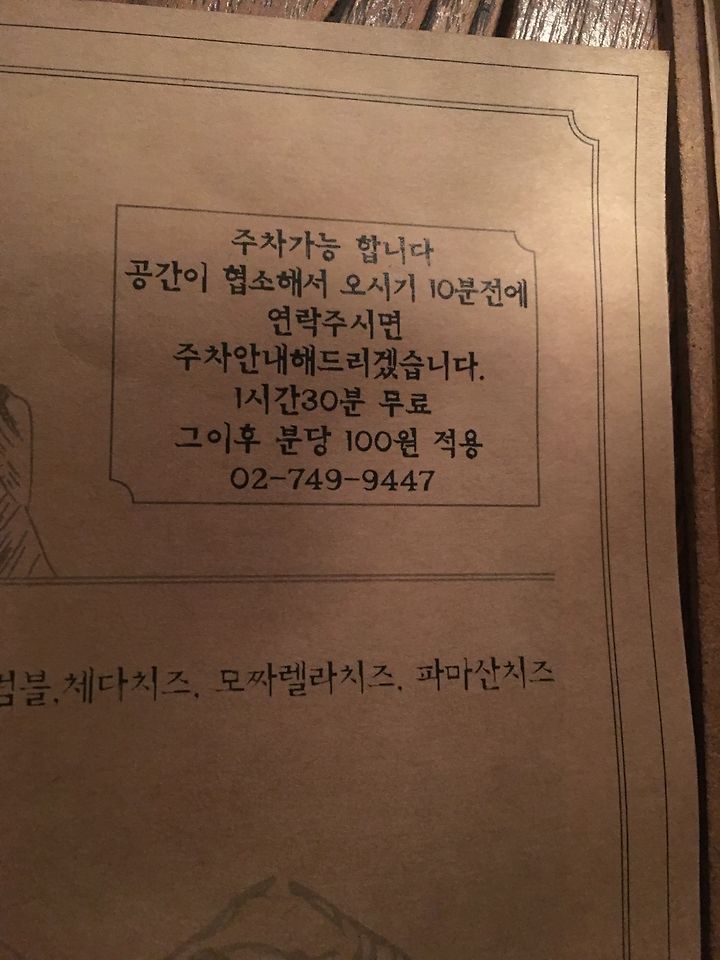 주차가능 합니다
공간이 협소해서 오시기 10분전에
연락주시면
주차안내해드리겠습니다.
1시간30분 무료
그이후 분당 100원 적용
02-749-9447
체다치즈, 모짜렐라치즈, 파마산치즈